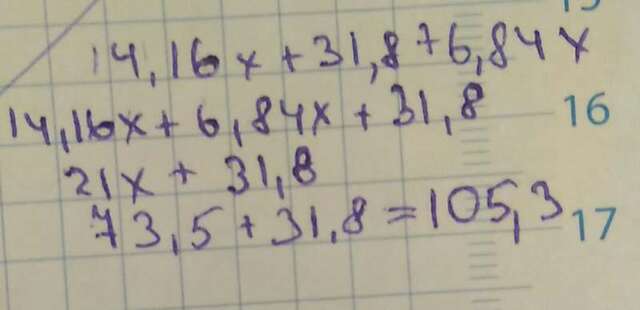 14,16x+31,8+6,84x
14,16x+6,84x+31,8
16
21x+31,8
73,5+31,8=105,3
17